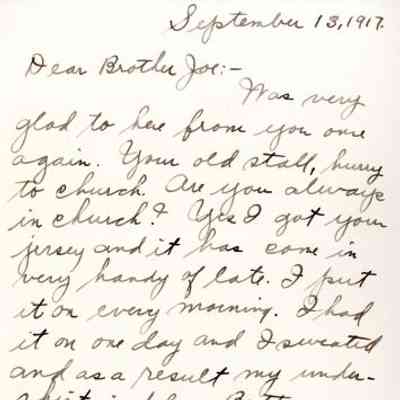 September 13, 1917.
Dear Brother Joe:-
Was very
glad to here from you once
again. Your old stall, hurry
to church. Are you always
in church? Yes I got your
jersey and it has come in
very handy of late. I put
it on every morning. I had
it on one day and I sweated
and as a result my under-